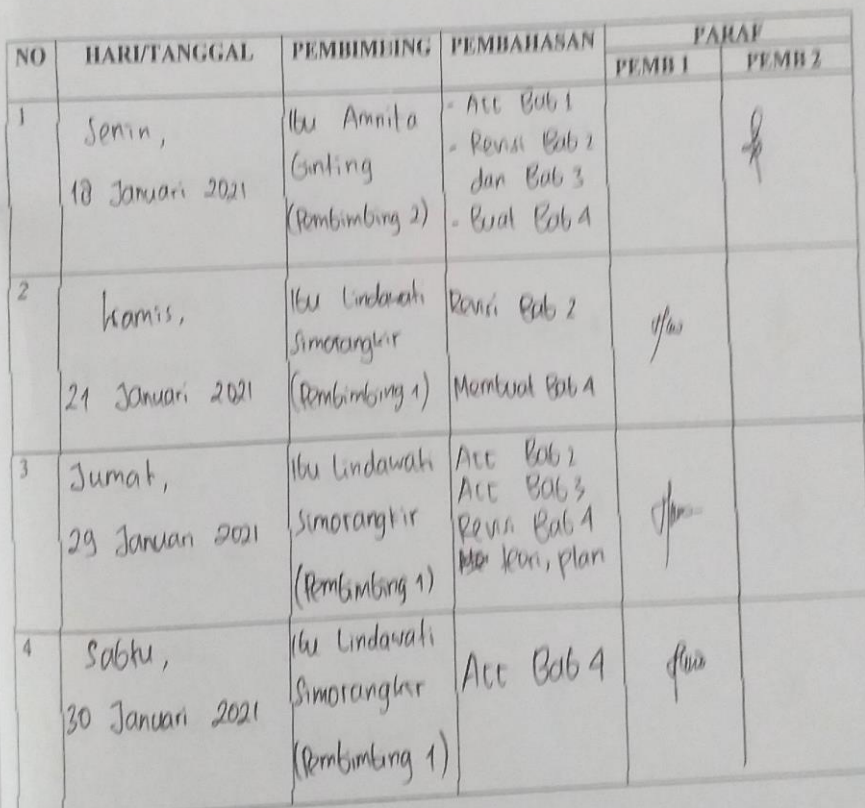 NO HARI/TANGGAL PEMBIMBING PEMBAHASAN PARAF
PEMB 1 PEMB 2
1 Senin,
18 Januari 2021
Ibu Amnita
Ginting
(Pembimbing 2)
- Acc Bab 1
- Revisi Bab 2
dan Bab 3
- Buat Bab 4
2 Kamis,
21 Januari 2021
Ibu Lindawati
Simorangkir
(Pembimbing 1)
Revisi Bab 2
Membuat Bab 4
3 Jumat,
29 Januari 2021
Ibu Lindawati
Simorangkir
(Pembimbing 1)
Acc Bab 2
Acc Bab 3
Revisi Bab 4
teori, plan
4 Sabtu,
30 Januari 2021
Ibu Lindawati
Simorangkir
(Pembimbing 1)
Acc Bab 4